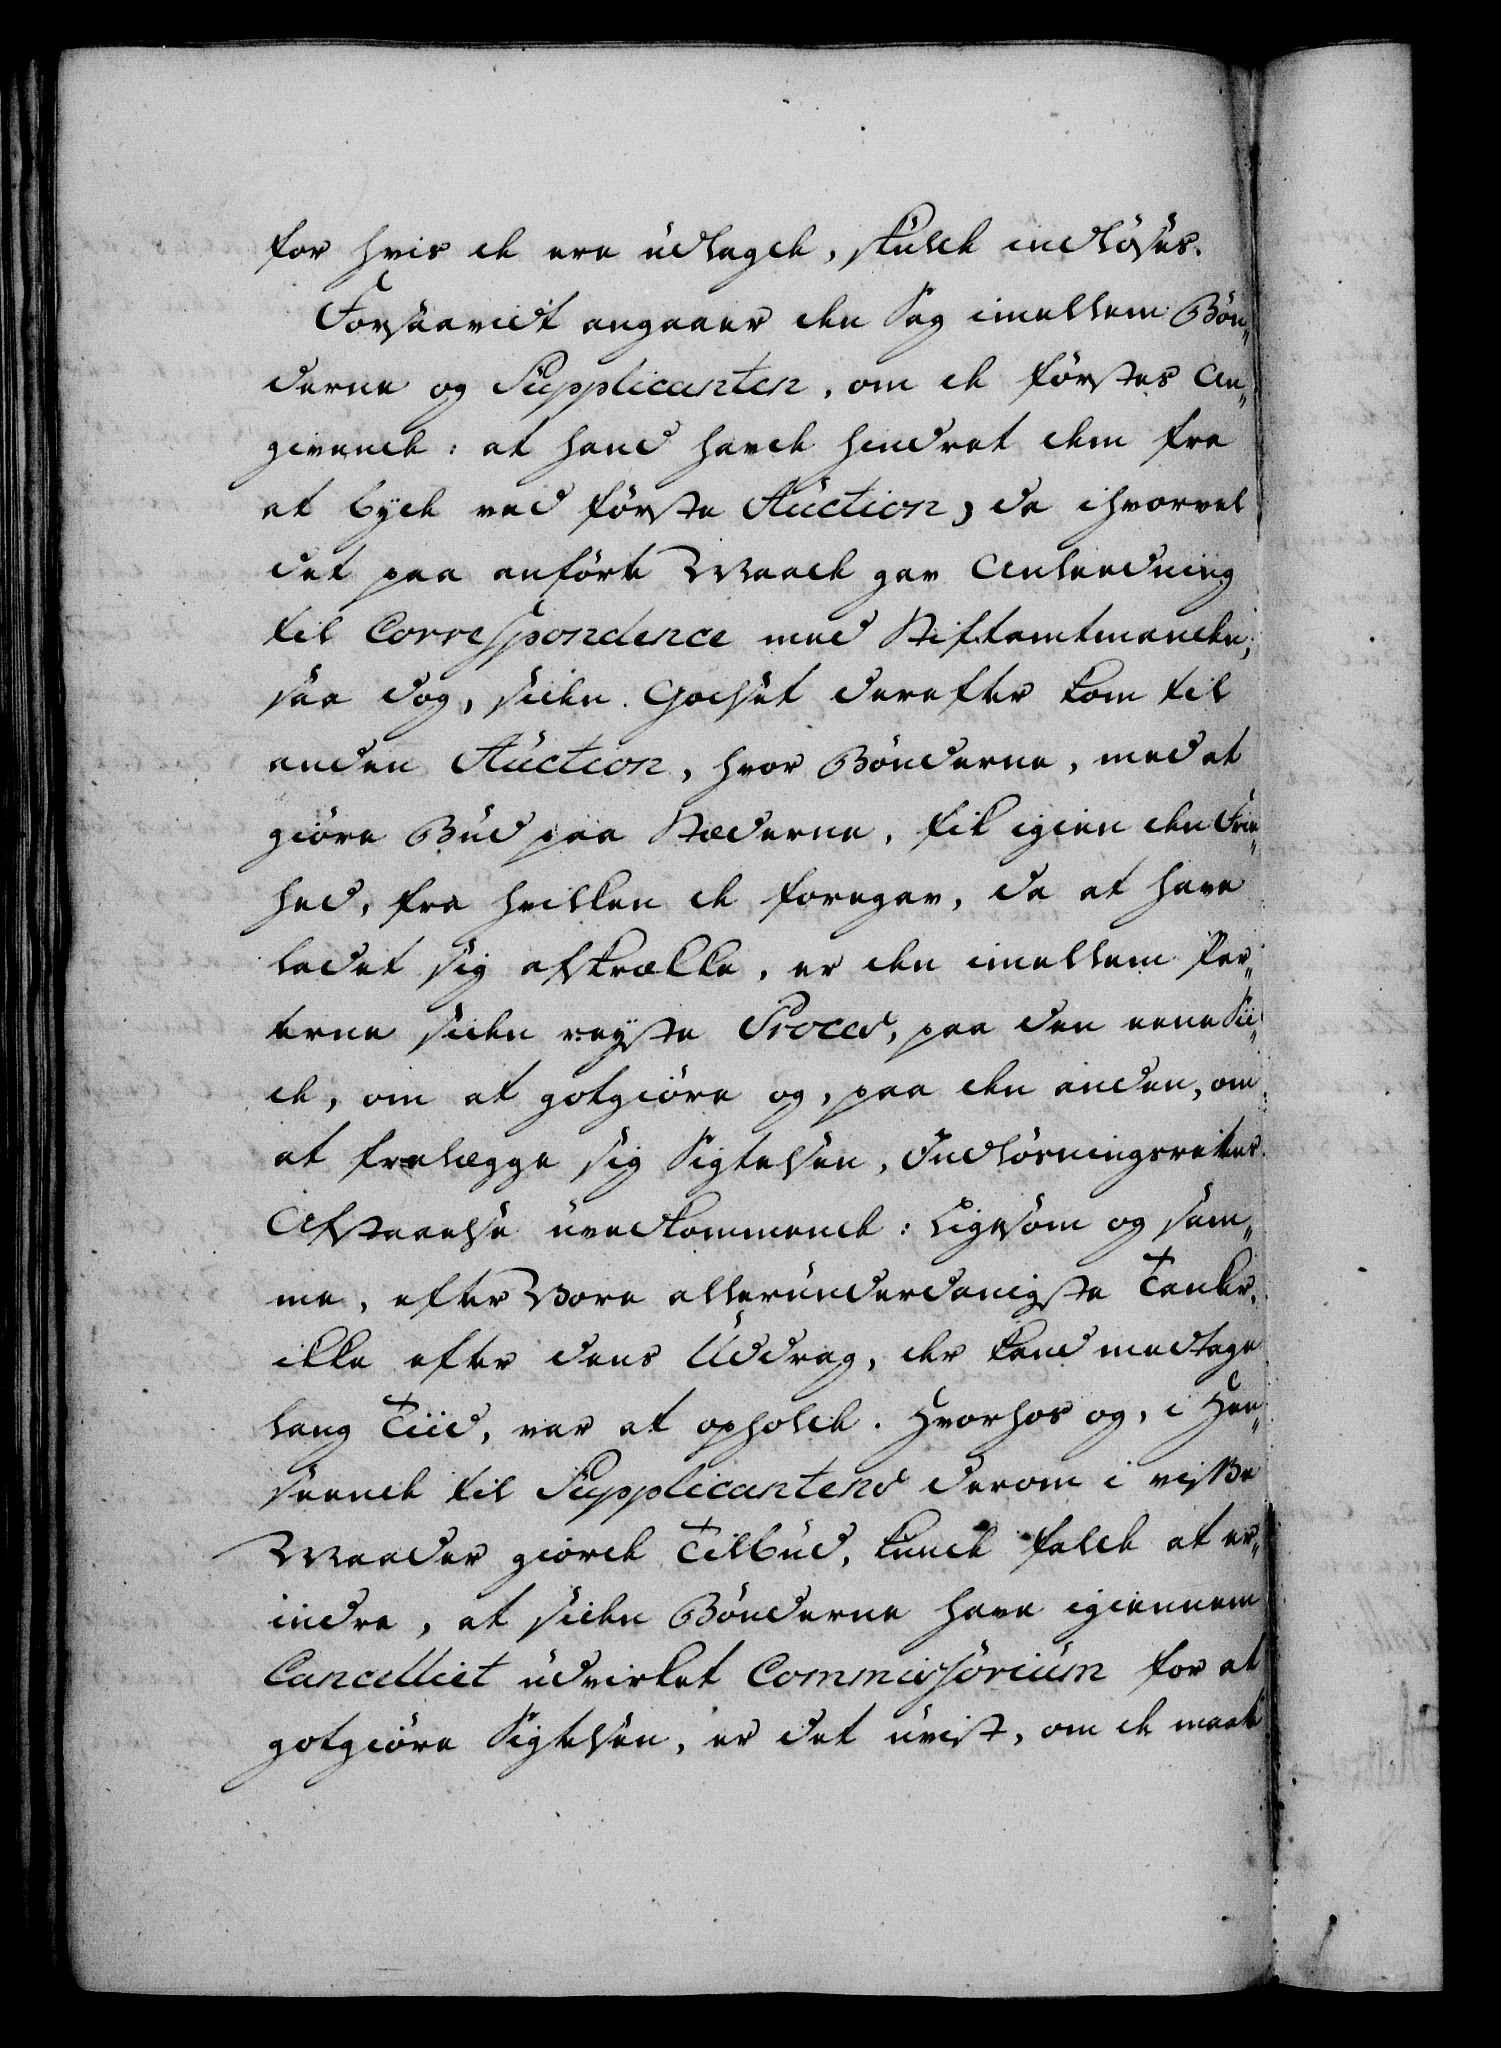 for hvis de ere udlagde, skulde indløses.
Forsaavidt angaaer den Sag imellem Bøn„
derne og Supplicanten, om de førstes An„
givende: at hand havde hindret dem fra
at byde ved første Auction, da ihvorvel
det paa anførte Maade gav Anleedning
til Correspondence med Stiftamtmanden;
saa dog, siden Godset derefter kom til
anden Auction, hvor Bønderne, med at
giøre Bud paa Stæderne, fik igien den Frie„
hed, fra hvilken de foregav, da at have
ladet sig afskrække, er den imellem Par„
terne siden reyste Proces, paa den eene Sii„
de, om at gotgiøre og, paa den anden, om
at fralægge sig Sigtelsen, Indløsningsrettes
Afstaaelse uvedkommende: Ligesom og sam„
me, efter Vore allerunderdanigste Tanker,
ikke efter dens Uddrag, der kand medtage
lang Tiid, var at opholde. Hvorhos og, i Hen„
seende til Supplicantens derom i visse
Maader giorde Tilbud, kunde falde at er„
indre, at siden Bønderne have igiennem
Cancelliet udvirket Commissorium for at
gotgiøre Sigtelsen, er det uvist, om de maatte